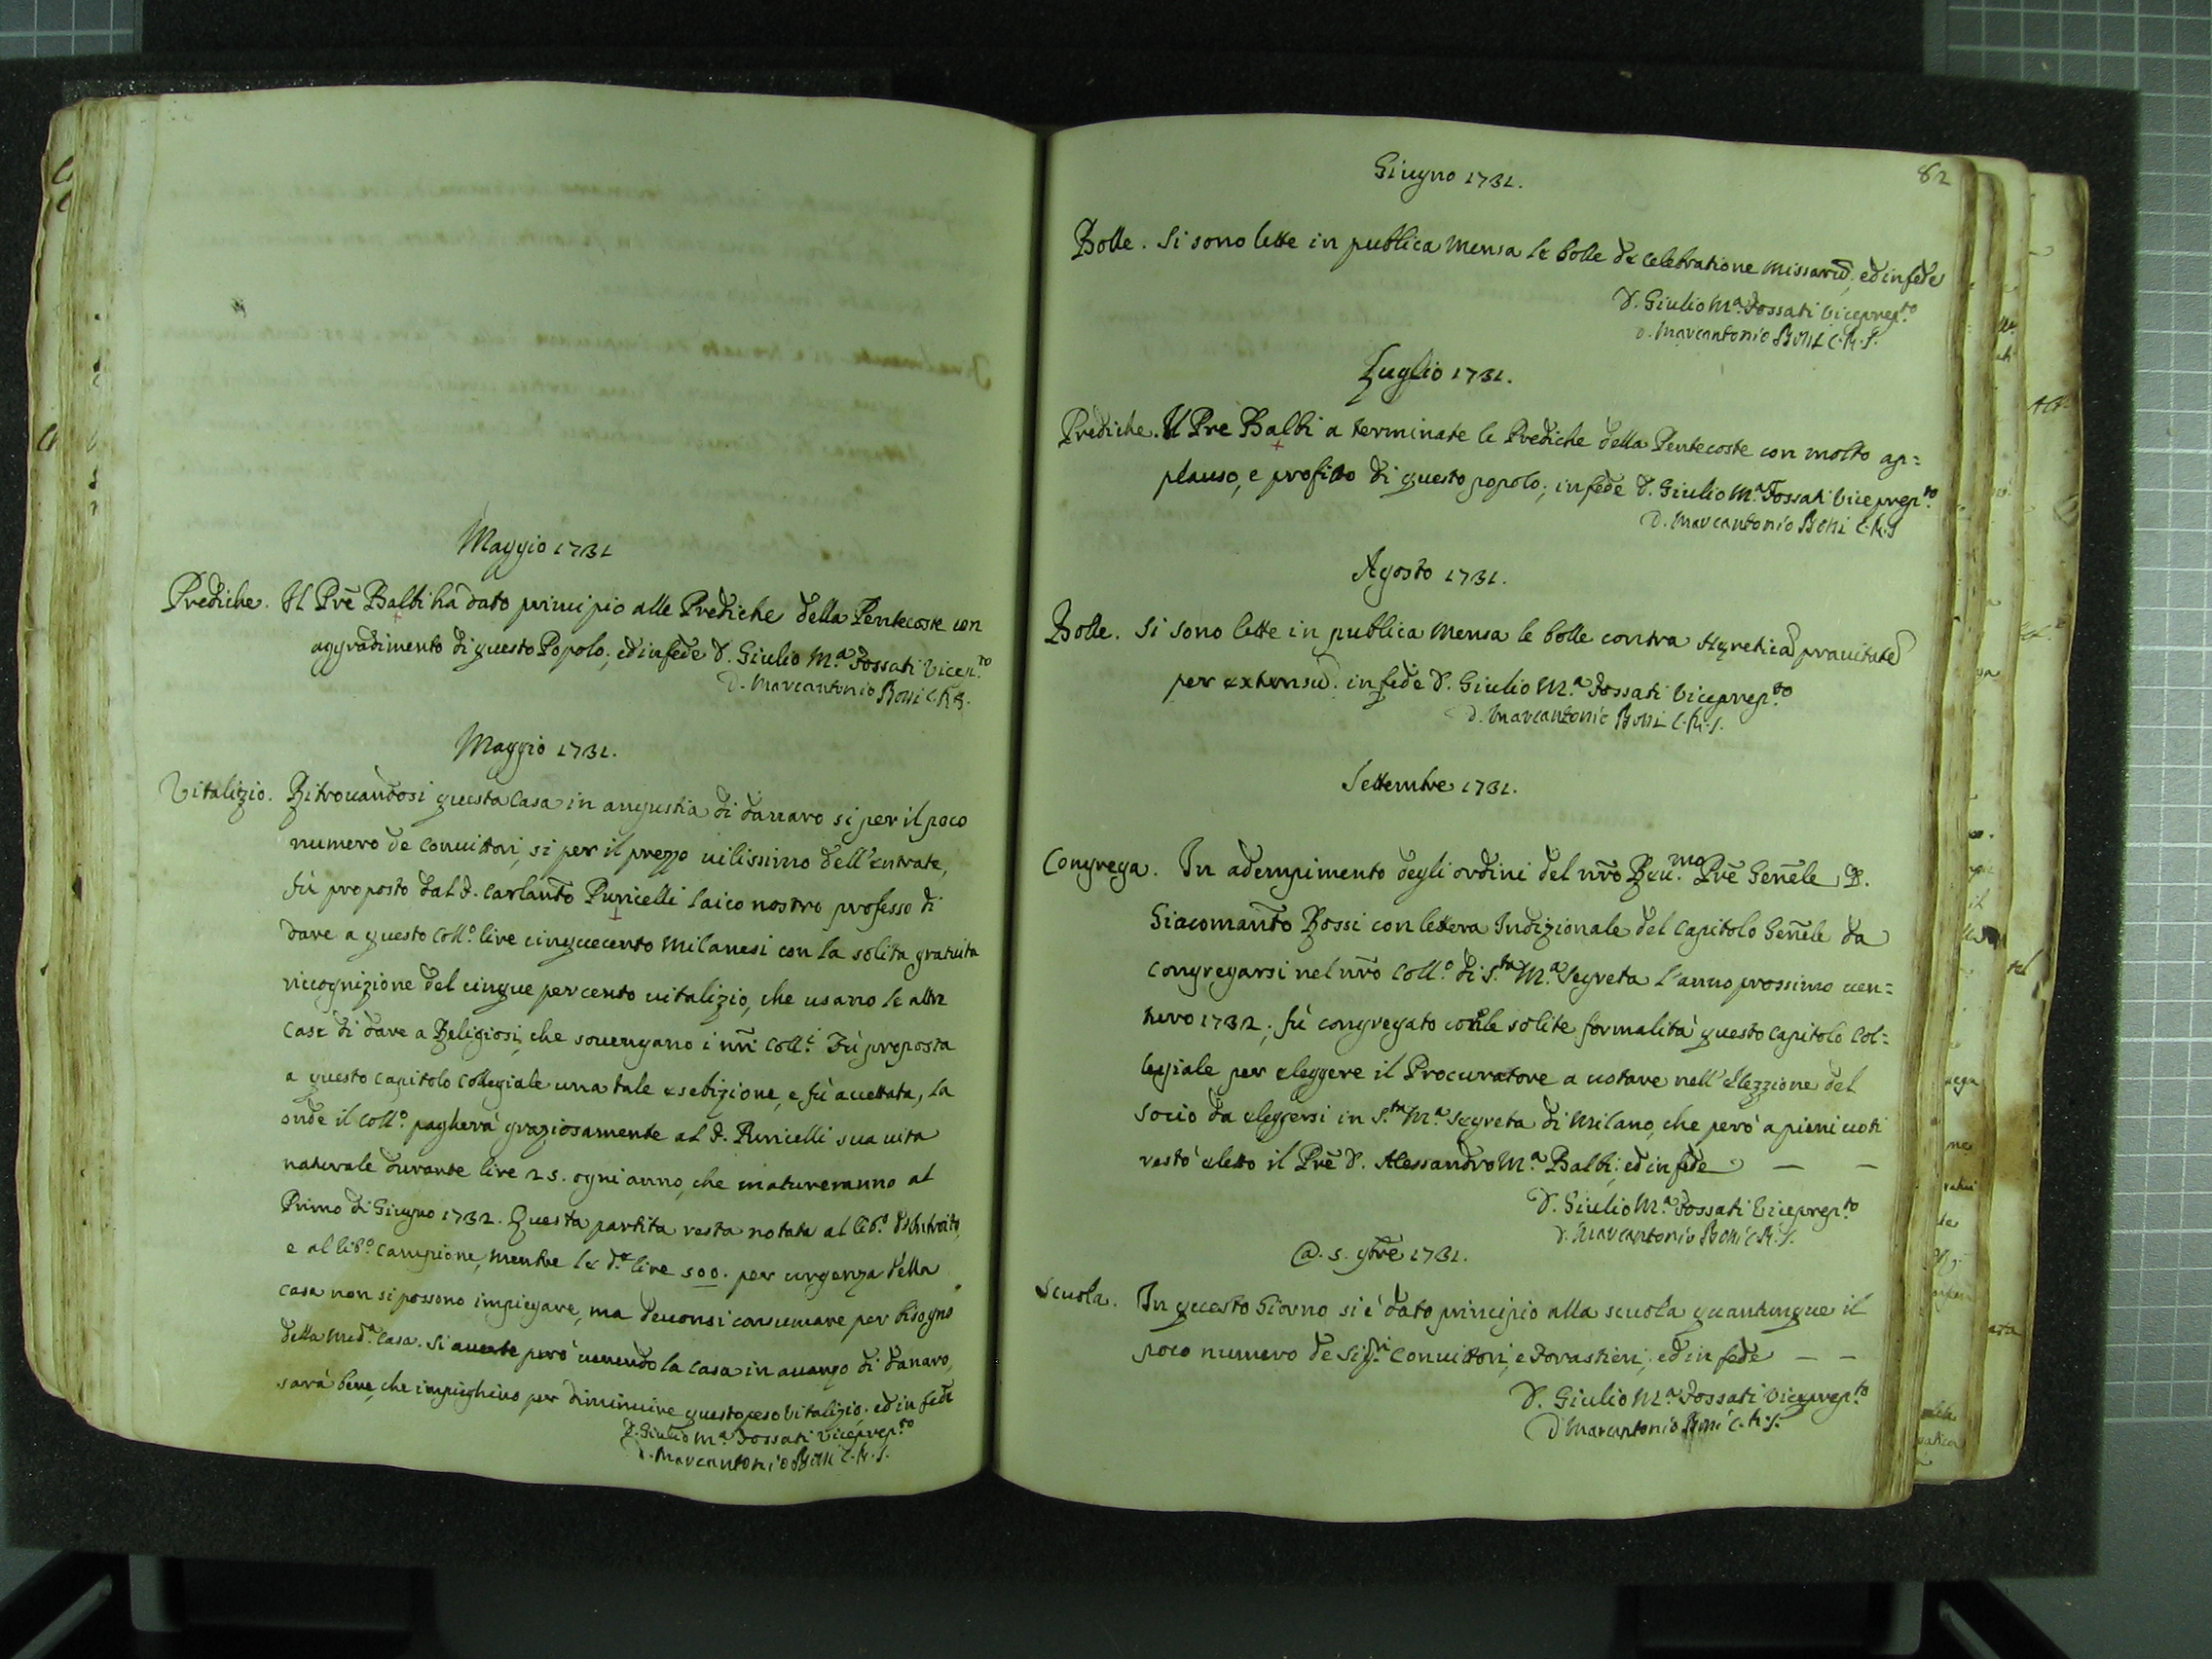 Maggio 1731
Prediche. Il Prē Balbi hà dato principio alle Prediche della Pentecoste con
aggradimento di questo Popolo; ed in fede D. Giulio M.ª Fossati Vicep.to
D. Marcantonio Boni C.R.S.
Maggio 1731.
Vitalizio. Ritrouandosi questa Casa in angustia di danaro si per il poco
numero de Conuittori, si per il prezzo uilissimo dell'entrate,
fù proposto dal F. Carlanto Puricelli laico nostro professo di
dare a questo Coll.º lire cinquecento Milanesi con la solita gratuita
ricognizione del cinque per cento uitalizio, che usano le altre
Case di dare a Religiosi, che souengano i nri Coll.i Fù proposta
a questo Capitolo Collegiale una tale esebizione, e fù accettata, la
onde il Coll.º pagherà graziosamente al F. Puricelli sua uita
naturale durante lire 25. ogni anno, che matureranno al
Primo di Giugno 1732. Questa partita resta notata al lib.º
e al lib.º Campione, mentre le d.e lire 500. per urgenza della
Casa non si possono impiegare, ma deuonsi consumare per bisogno
della med.ª Casa. Si auerte però uenendo la Casa in auanzo di danaro,
sarà bene, che impieghino per diminuire questo peso Vitalizio. ed in fede
D. Giulio M.ª Fossati Viceprep.to
D. Marcantonio Boni C.R.S.
82
Giugno 1731.
Bolle. Si sono lette in publica Mensa le bolle de celebratione missarū; ed in fede
D. Giulio M.ª Fossati Viceprep.to
D. Marcantonio Boni C.R.S.
Luglio 1731.
Prediche. Il Pre Balbi a terminate le Prediche della Pentecoste con molto ap=
plauso, e profitto di questo popolo; in fede D. Giulio M.ª Fossati Viceprep.to
D. Marcantonio Boni C.R.S
Agosto 1731.
Bolle. Si sono lette in publica Mensa le bolle contra Hyretica prauitate
per extensū. in fede D. Giulio M.ª Fossati Viceprep.to
D. Marcantonio Boni C.R.S.
Settembre 1731.
Congrega. In adempimento degli ordini del nrō Reu.mo Prē Genēle D.
Giacomanto Rossi con lettera Indizionale del Capitolo Genēle da
Congregarsi nel nrō Coll.º di S.ta M.ª Segreta l'anno prossimo uen=
turo 1732; fù congregato con le solite formalità questo Capitolo Col=
legiale per eleggere il Procuratore a uotare nell'Elezzione del
Socio da eleggersi in S.ta M.ª Segreta di Milano, che però a pieni uoti
restò eletto il Prē D. Alessandro M.ª Balbi; ed in fede — —
D. Giulio M.ª Fossati Viceprep.to
D. Marcantonio Boni C.R.S.
@. 5. 9brē 1731.
Scuola. In questo Giorno si è dato principio alla scuola quantunque il
poco numero de Sig.ri Conuittori, e Forastieri; ed in fede — —
D. Giulio M.ª Fossati Viceprep.to
D Marcantonio Boni C.R.S.